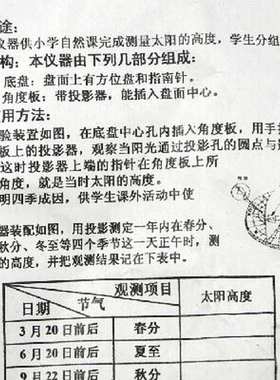 途：
仪器供小学自然课完成测量太阳的高度，学生分组
构：本仪器由下列几部分组成：
底盘：盘面上有方位盘和指南针。
角度板：带投影器，能插入盘面中心。
使用方法：
验装置如图，在底盘中心孔内插入角度板，用手
板上的投影器，观察当阳光通过投影孔的圆点与
这时投影器上端的指针在角度板上所
角度，就是当时太阳的高度。
明四季成因，供学生课外活动中使
器装配如图，用投影测定一年内在春分、
秋分、冬至等四个季节这一天正午时，测
的高度，并把观测结果记在下表中。
观测项目
节气
日期
太阳高度
3月20日前后 春分
6月20日前后 夏至
9月22日前后 秋分